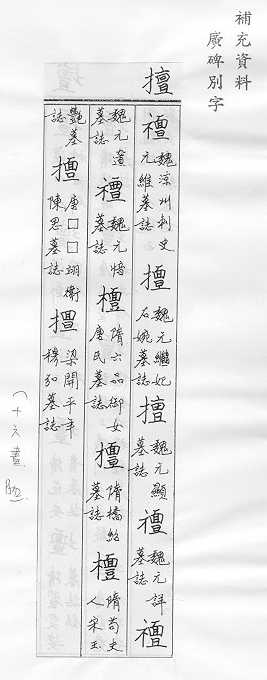 補充資料
廣碑別字
擅
襢 魏涼州刺史元維墓誌 擅 魏元繼妃石婉墓誌 擅 魏元顯墓誌 襢 魏元詳墓誌 襢
魏元墓誌 襢 魏元愔墓誌 檀 隋六品御女唐氏墓誌 檀 隋橋紹墓誌 檀 隋荀史人宋玉
豔墓誌 擅 唐□□翊衛陳思墓誌 擅 梁開平年穆弘墓誌
(十六畫